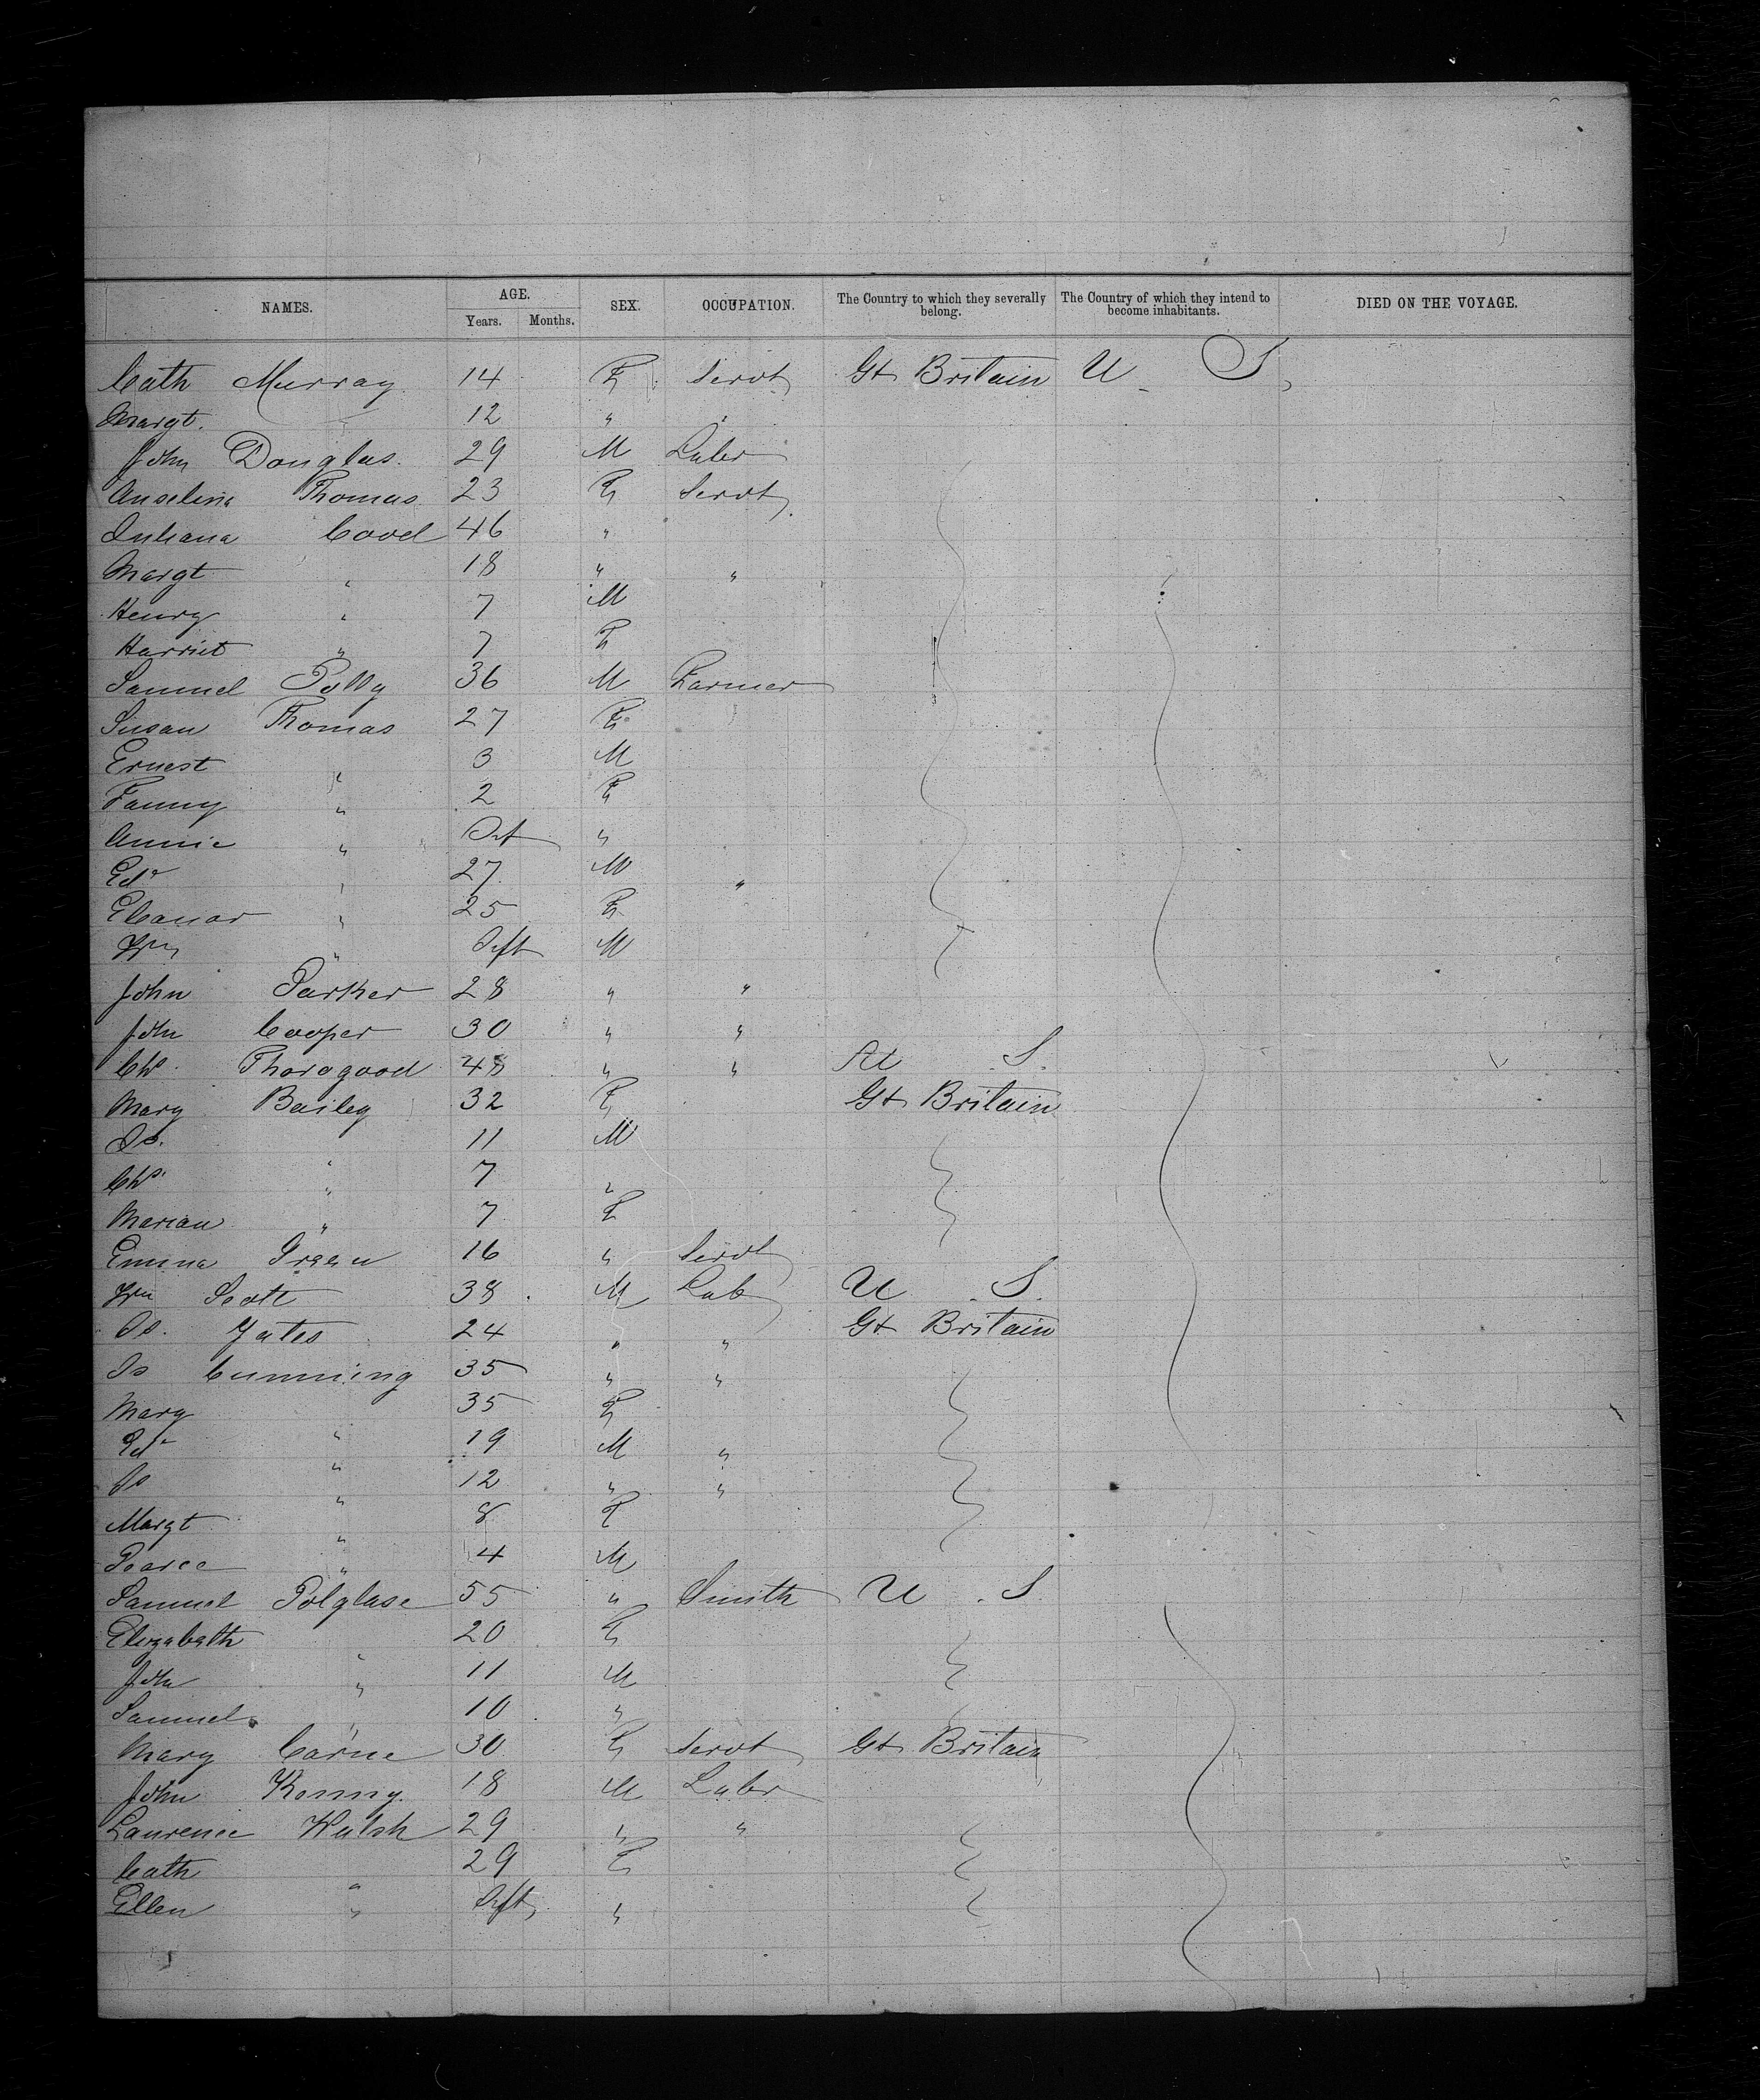 NAMES. AGE. SEX. OCCUPATION. The Country to which they severally belong. The Country of which they intend to become inhabitants. DIED ON THE VOYAGE.
Years. Months.
Cath Murray 14 F Servt Gt Britain U S
Margt. 12 "
John Douglas. 29 M Labr
Anselina Thomas 23 F Servt
Juliana Cood 46 "
Margt " 18 " "
Henry " 7 M
Harriet " 7 F
Samuel Polly 36 M Farmer
Susan Thomas 27 F
Ernest " 3 M
Fanny " 2 F
Annie " Inft "
Edw " 27 M "
Eleanor " 25 F
Wm " Inft M
John Parker 28 " "
John Cooper 30 " "
Chs. Thorogood 48 " " U S.
Mary Bailey 32 F Gt Britain
Js. " 11 M
Chs. " 7 "
Marian " 7 F
Emma Green 16 " Servt
Wm Scott 38 M Lab U S.
Js. Yates 24 " " Gt Britain
Js Cumming 35 " "
Mary " 35 F
Edw " 19 M "
Js " 12 " "
Margt " 8 F
Pearce " 4 M
Samuel Polglase 55 " Smith U S
Elizabeth " 20 F
John " 11 M
Samuel " 10 "
Mary Carne 30 F Servt Gt Britain
John Kenny 18 M Labr
Laurence Walsh 29 " "
Cath " 29 F
Ellen " Inft "